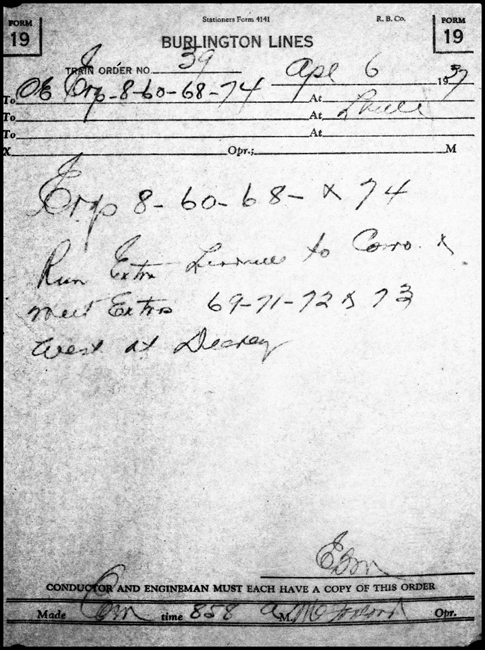 Stationers Form 4141
R. B. Co.
FORM 19
FORM 19
BURLINGTON LINES
TRAIN ORDER NO. 39
Apl 6 1937
To OE Eng-8-60-68-74 At
To At
To At
To At
X Opr.; M
Eng 8-60-68-x 74
Run Extra to x
meet Extras 69-71-72 x 73
West at
CONDUCTOR AND ENGINEMAN MUST EACH HAVE A COPY OF THIS ORDER
Made Com time 858 A M. Opr.